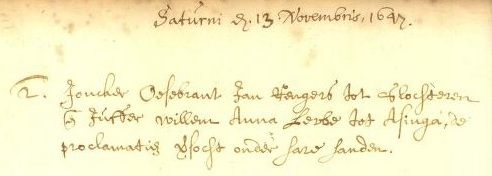 Saturni d. 13 Novembris, 1647.
2. Joncker Osebrant Jan Rengers tot Slochteren
Juffer Willem Anna tot Asinga, de
proclamatien versocht onder hare handen.